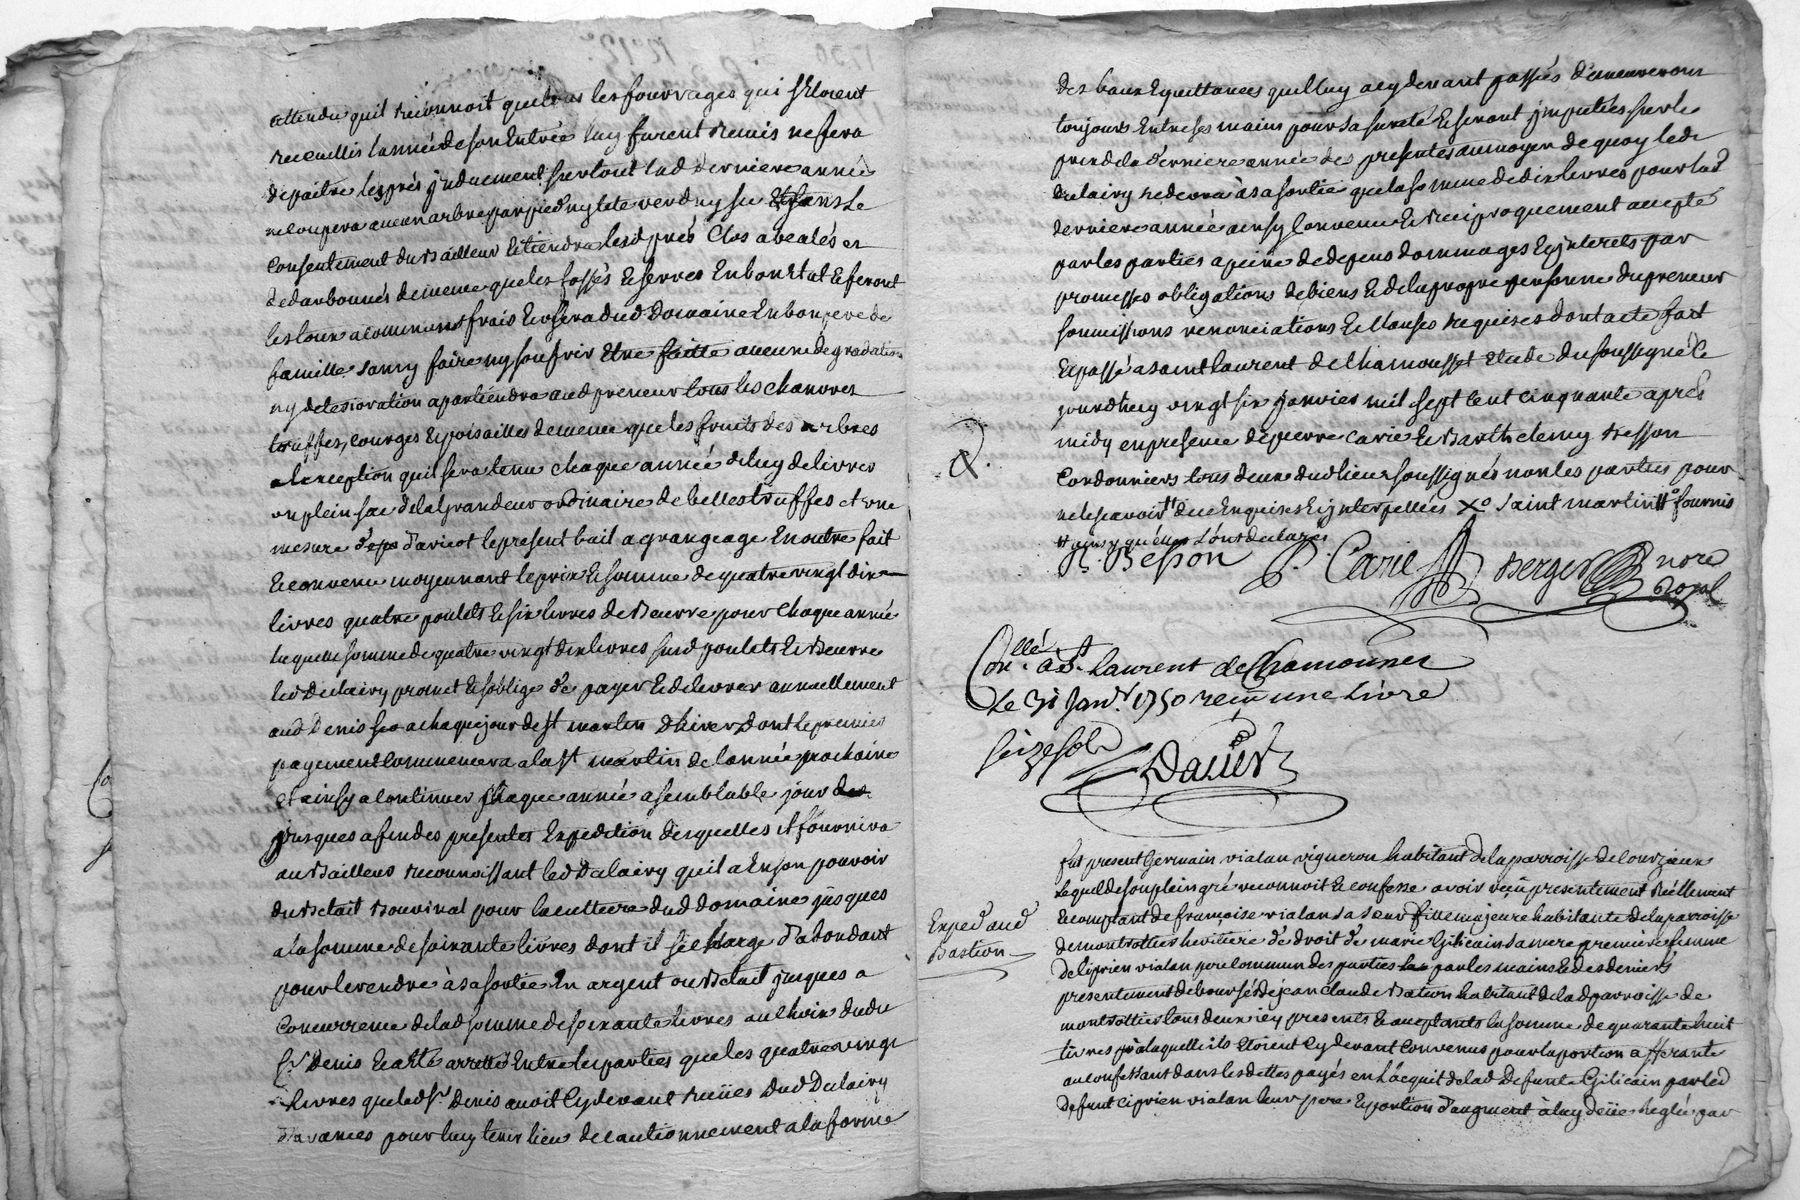 attendu quil reconnoit que tous les fourrages qui s'Etoient
recueillis lannée de son Entrée luy furent remis ne fera
depaitre les prés induement surtout lad derniere année
ne coupera aucun arbre par pied ny tete verd ny sec Et sans le
Consentement du Bailleur Et tiendra lesd prés Clos abealés et
dedarbonnés de meme que les fossés Et serves En bon Etat Et feront
les tour a communs frais Et usera dud Domaine En bon pere de
famille sans y faire ny soufrir Etre faitte aucune degradation
ny deterioration apartiendra aud preneur tous les chanvres
truffes, courges Et poisailles de meme que les fruits des arbres
a lexception quil sera tenu chaque année de luy delivrer
un plein sac de la grandeur ordinaire de belles truffes et une
mesure d'aricot le present bail a grangeage En outre fait
Et convenu moyennant le prix Et somme de quatre vingt dix
livres quatre poulets Et six livres de Beurre pour chaque année
laquelle somme de quatre vingt dix livres susd poulets Et Beurre
led Dulairy promet Et s'oblige de payer Et delivrer annuellement
aud Denis a chaque jour de st martin d'hiver Dont le premier
payement Commencera a la st martin de lannée prochaine
et ainsy a Continuer chaque année a semblable jour
jusques a fin des presentes Expedition desquelles il fournira
au Bailleur reconnoissant led Dulairy quil a En son pouvoir
du Betail Bouvinal pour la culture dud domaine jusques
a la somme de soixante livres dont il se charge d'abondant
pour le rendre à sa sortie En argent ou Betail jusques a
Concurrence de lad somme de soixante livres au choix dudit
Sr Denis Et a Eté arretté Entre les parties que les quatre vingt
livres que led Sr Denis avoit Cy devant reçües dud Dulairy
d'avances pour luy tenir lieu de cautionnement a la forme
des baux Et quittances quil luy a cy devant passés demeureront
toujours Entre ses mains pour sa sureté Et seront imputées sur le
prix de la derniere année des presentes au moyen de quoy led
Dulairy redevra à sa sortie que la somme de dix livres pour lad
derniere année ainsy Convenu Et reciproquement accepté
par les parties a peine de depens dommages Et interets par
promesses obligations de biens Et de la propre personne du preneur
soumissions renonciations Et Clauses requises dont acte fait
Et passé a saint laurent de Chamousset Etude du soussigné le
jourdhuy vingt six janvier mil sept cent cinquante après
midy en presence de pierre Carie Et Barthelemy Besson
Cordonniers tous deux dud lieu soussignés non les parties pour
ne le scavoir de ce Enquises Et interpellées Xo saint martin Ho fournis
H ainsy qu'elles l'ont declaré
B. Besson P. Carie Berger nore
royal
Conllé. a St. laurent de Chamousset
Le 31 Janr. 1750 reçu une livre
seize sols
Dacier
fut present Germain vialan vigneron habitant de la parroisse de Courzieux
Lequel de son plein gré reconnoit Et confesse avoir reçu presentement réellement
Et comptant de françoise vialan sa seur fille majeure habitante de la parroisse
de montrottier heritiere de droit de marie Gilicain sa mere premiere femme
de Ciprien vialan pere commun des parties par les mains Et des deniers
Exped aud
Bastion
presentement deboursés de jean claude Bation habitant de lad parroisse de
montrottier tous deux icy presents Et acceptants la somme de quarante huit
livres à laquelle ils Etoient Cy devant Convenus pour la portion afferante
au confessant dans les dettes payés en l'acquit de lad Defunte Gilicain par led
Defunt Ciprien vialan leur pere Et portion d'augment à luy deüe reglée par